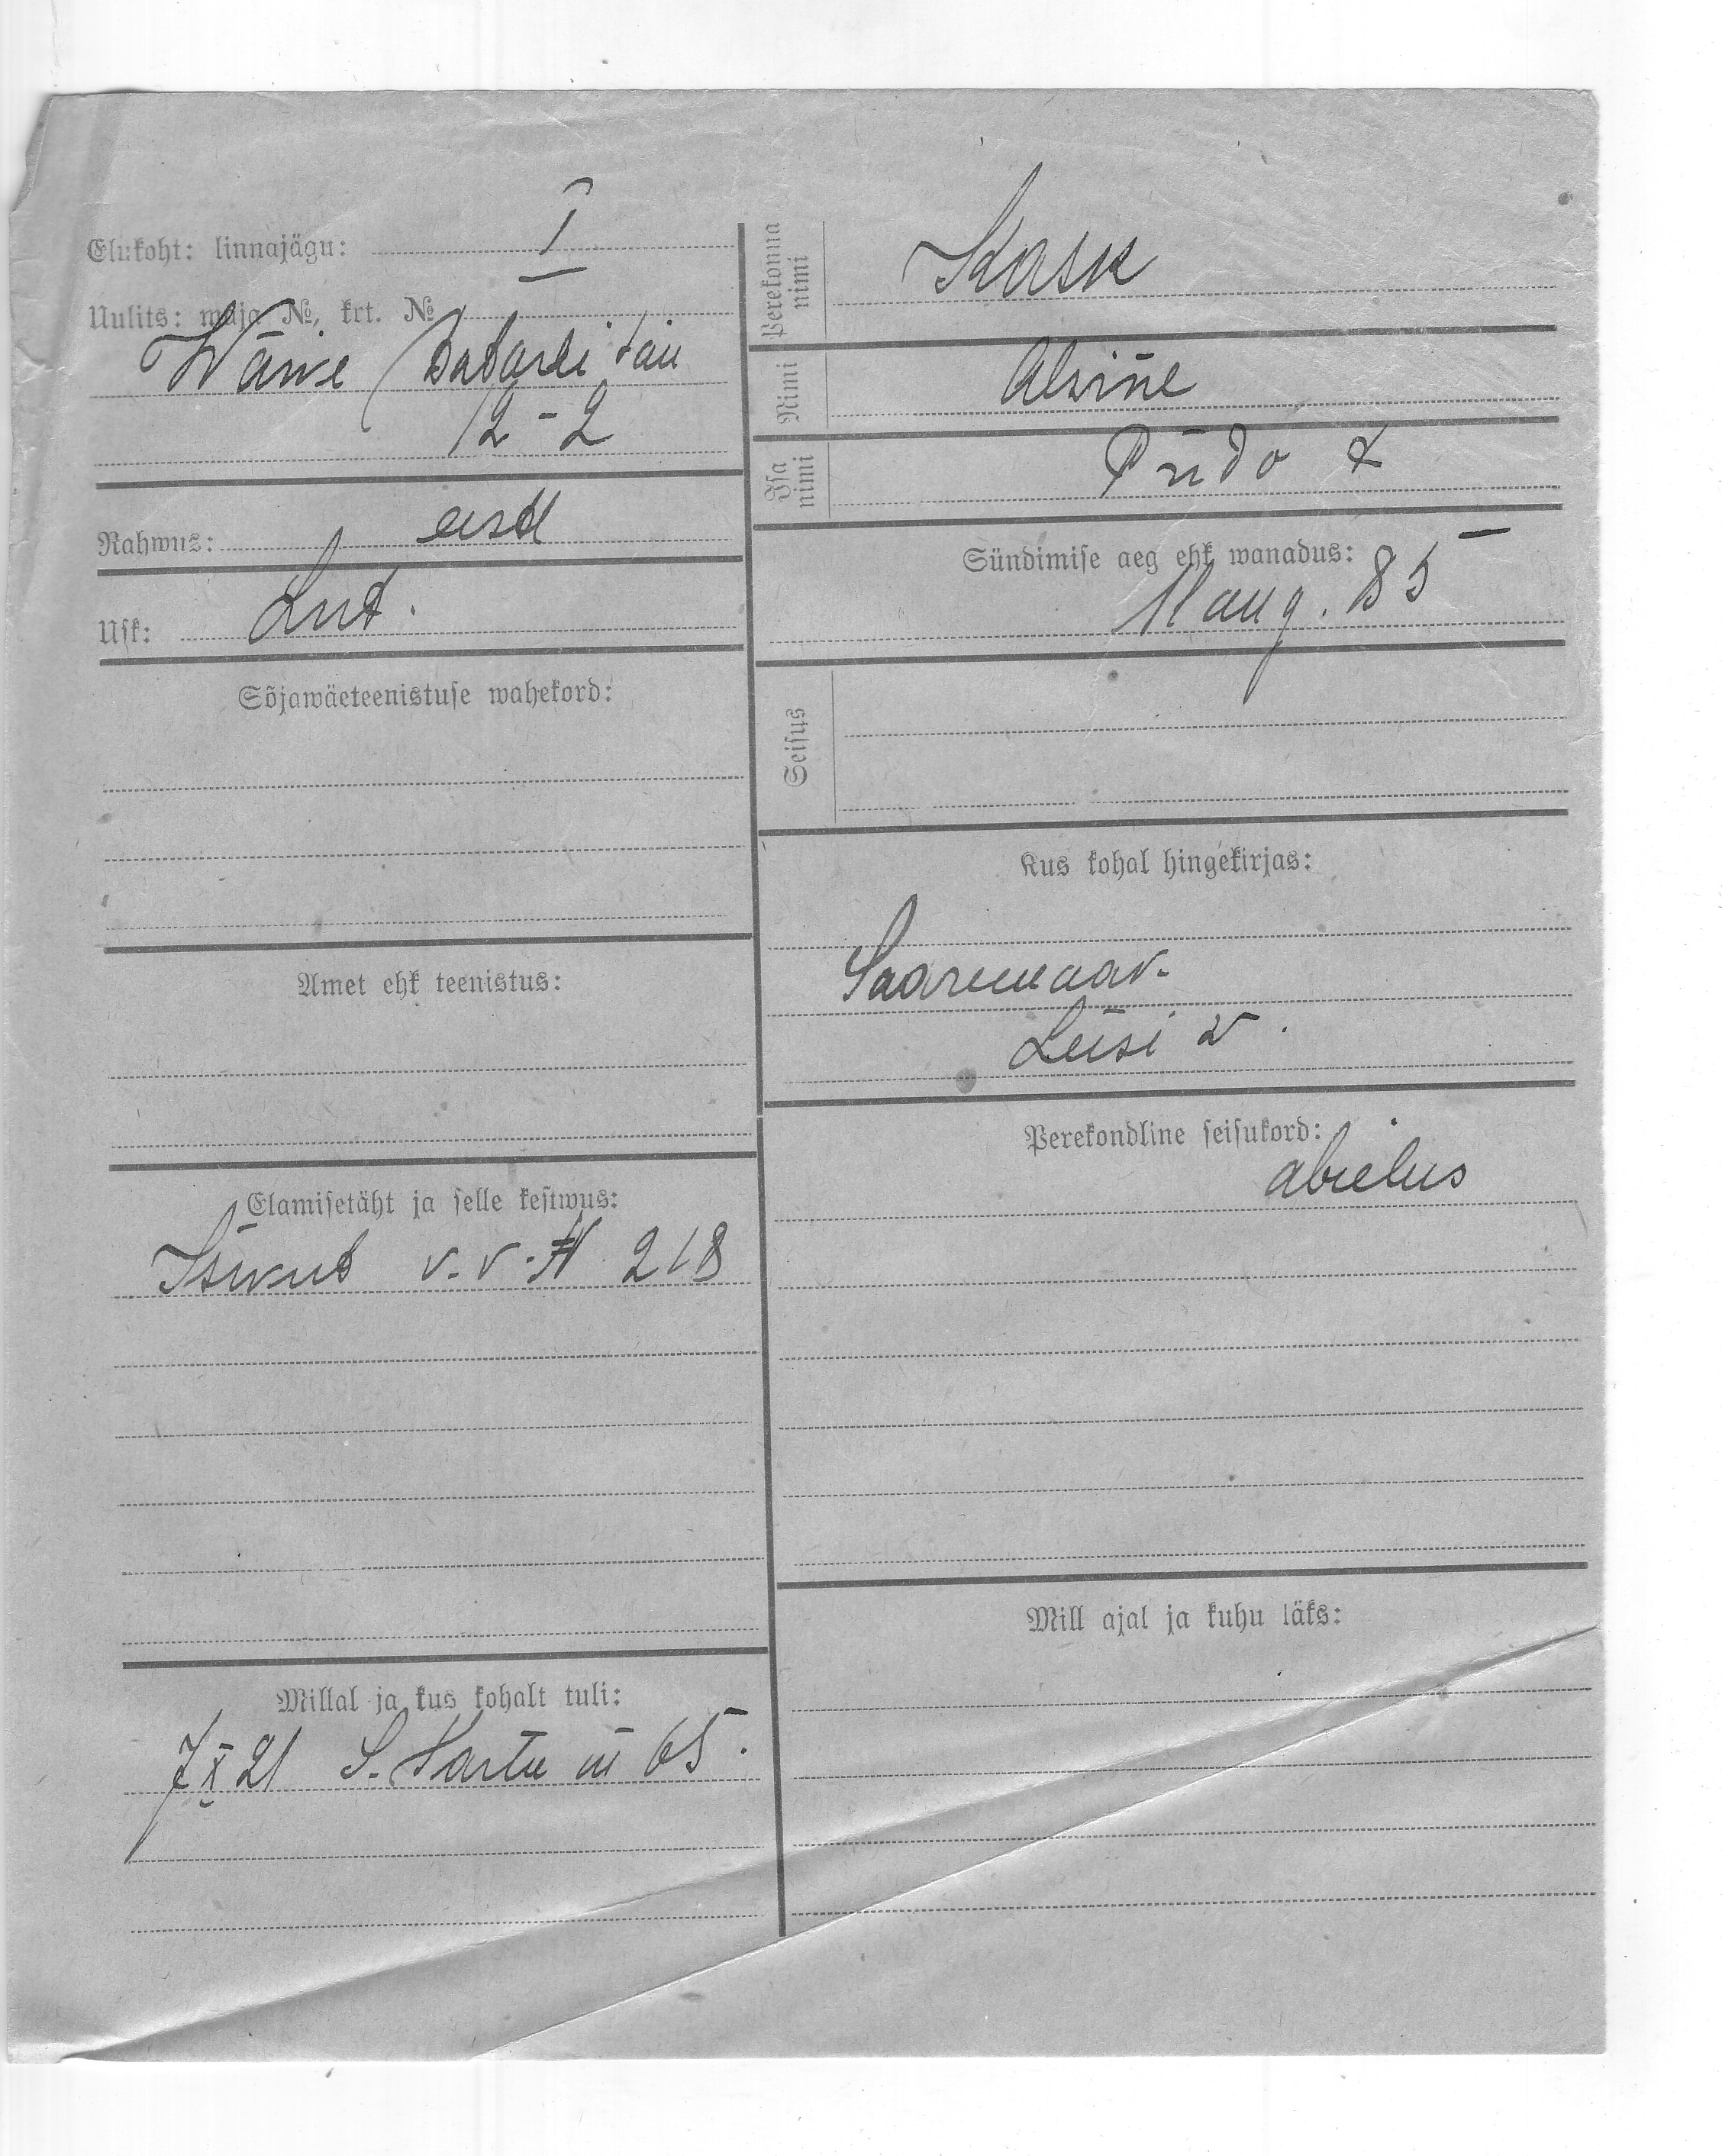 Elukoht: linnajägu: I
Uulits: maja №, krt. №
12-2
Rahwus: eesti
Usk: Lut.
Sõjawäeteenistuse wahekord:
Amet ehk teenistus:
Elamisetäht ja selle kestwus:
Isikut v.v. № 218
Millal ja kus kohalt tuli:
7 X 21 S. Tartu m 65.
Perekonna nimi Kask
Nimi Alwine
Isa nimi Priido t
Sündimise aeg ehk wanadus:
11 aug. 85
Seisus
Kus kohal hingekirjas:
Saaremaa v.
Leisi v.
Perekondline seisukord:
abielus
Mill ajal ja kuhu läks: